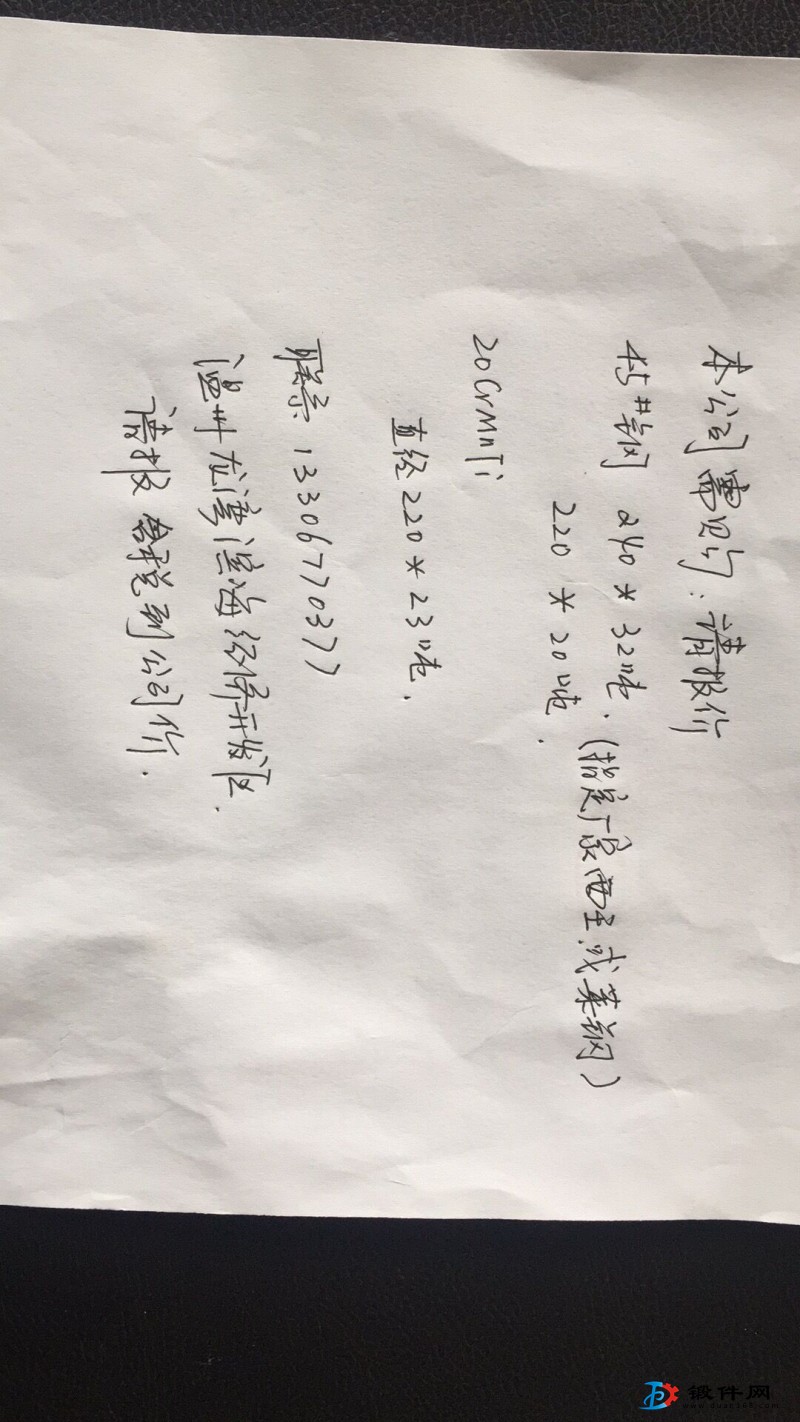 本公司需见购：请报价
45#钢 240*32吨.（指定厂家西王或莱钢）
220*20吨.
20CrMnTi
直径220*23吨.
联系 13306770377
温州龙湾滨海经济开发区.
请报含税到公司价.
锻件网
www.duan168.com